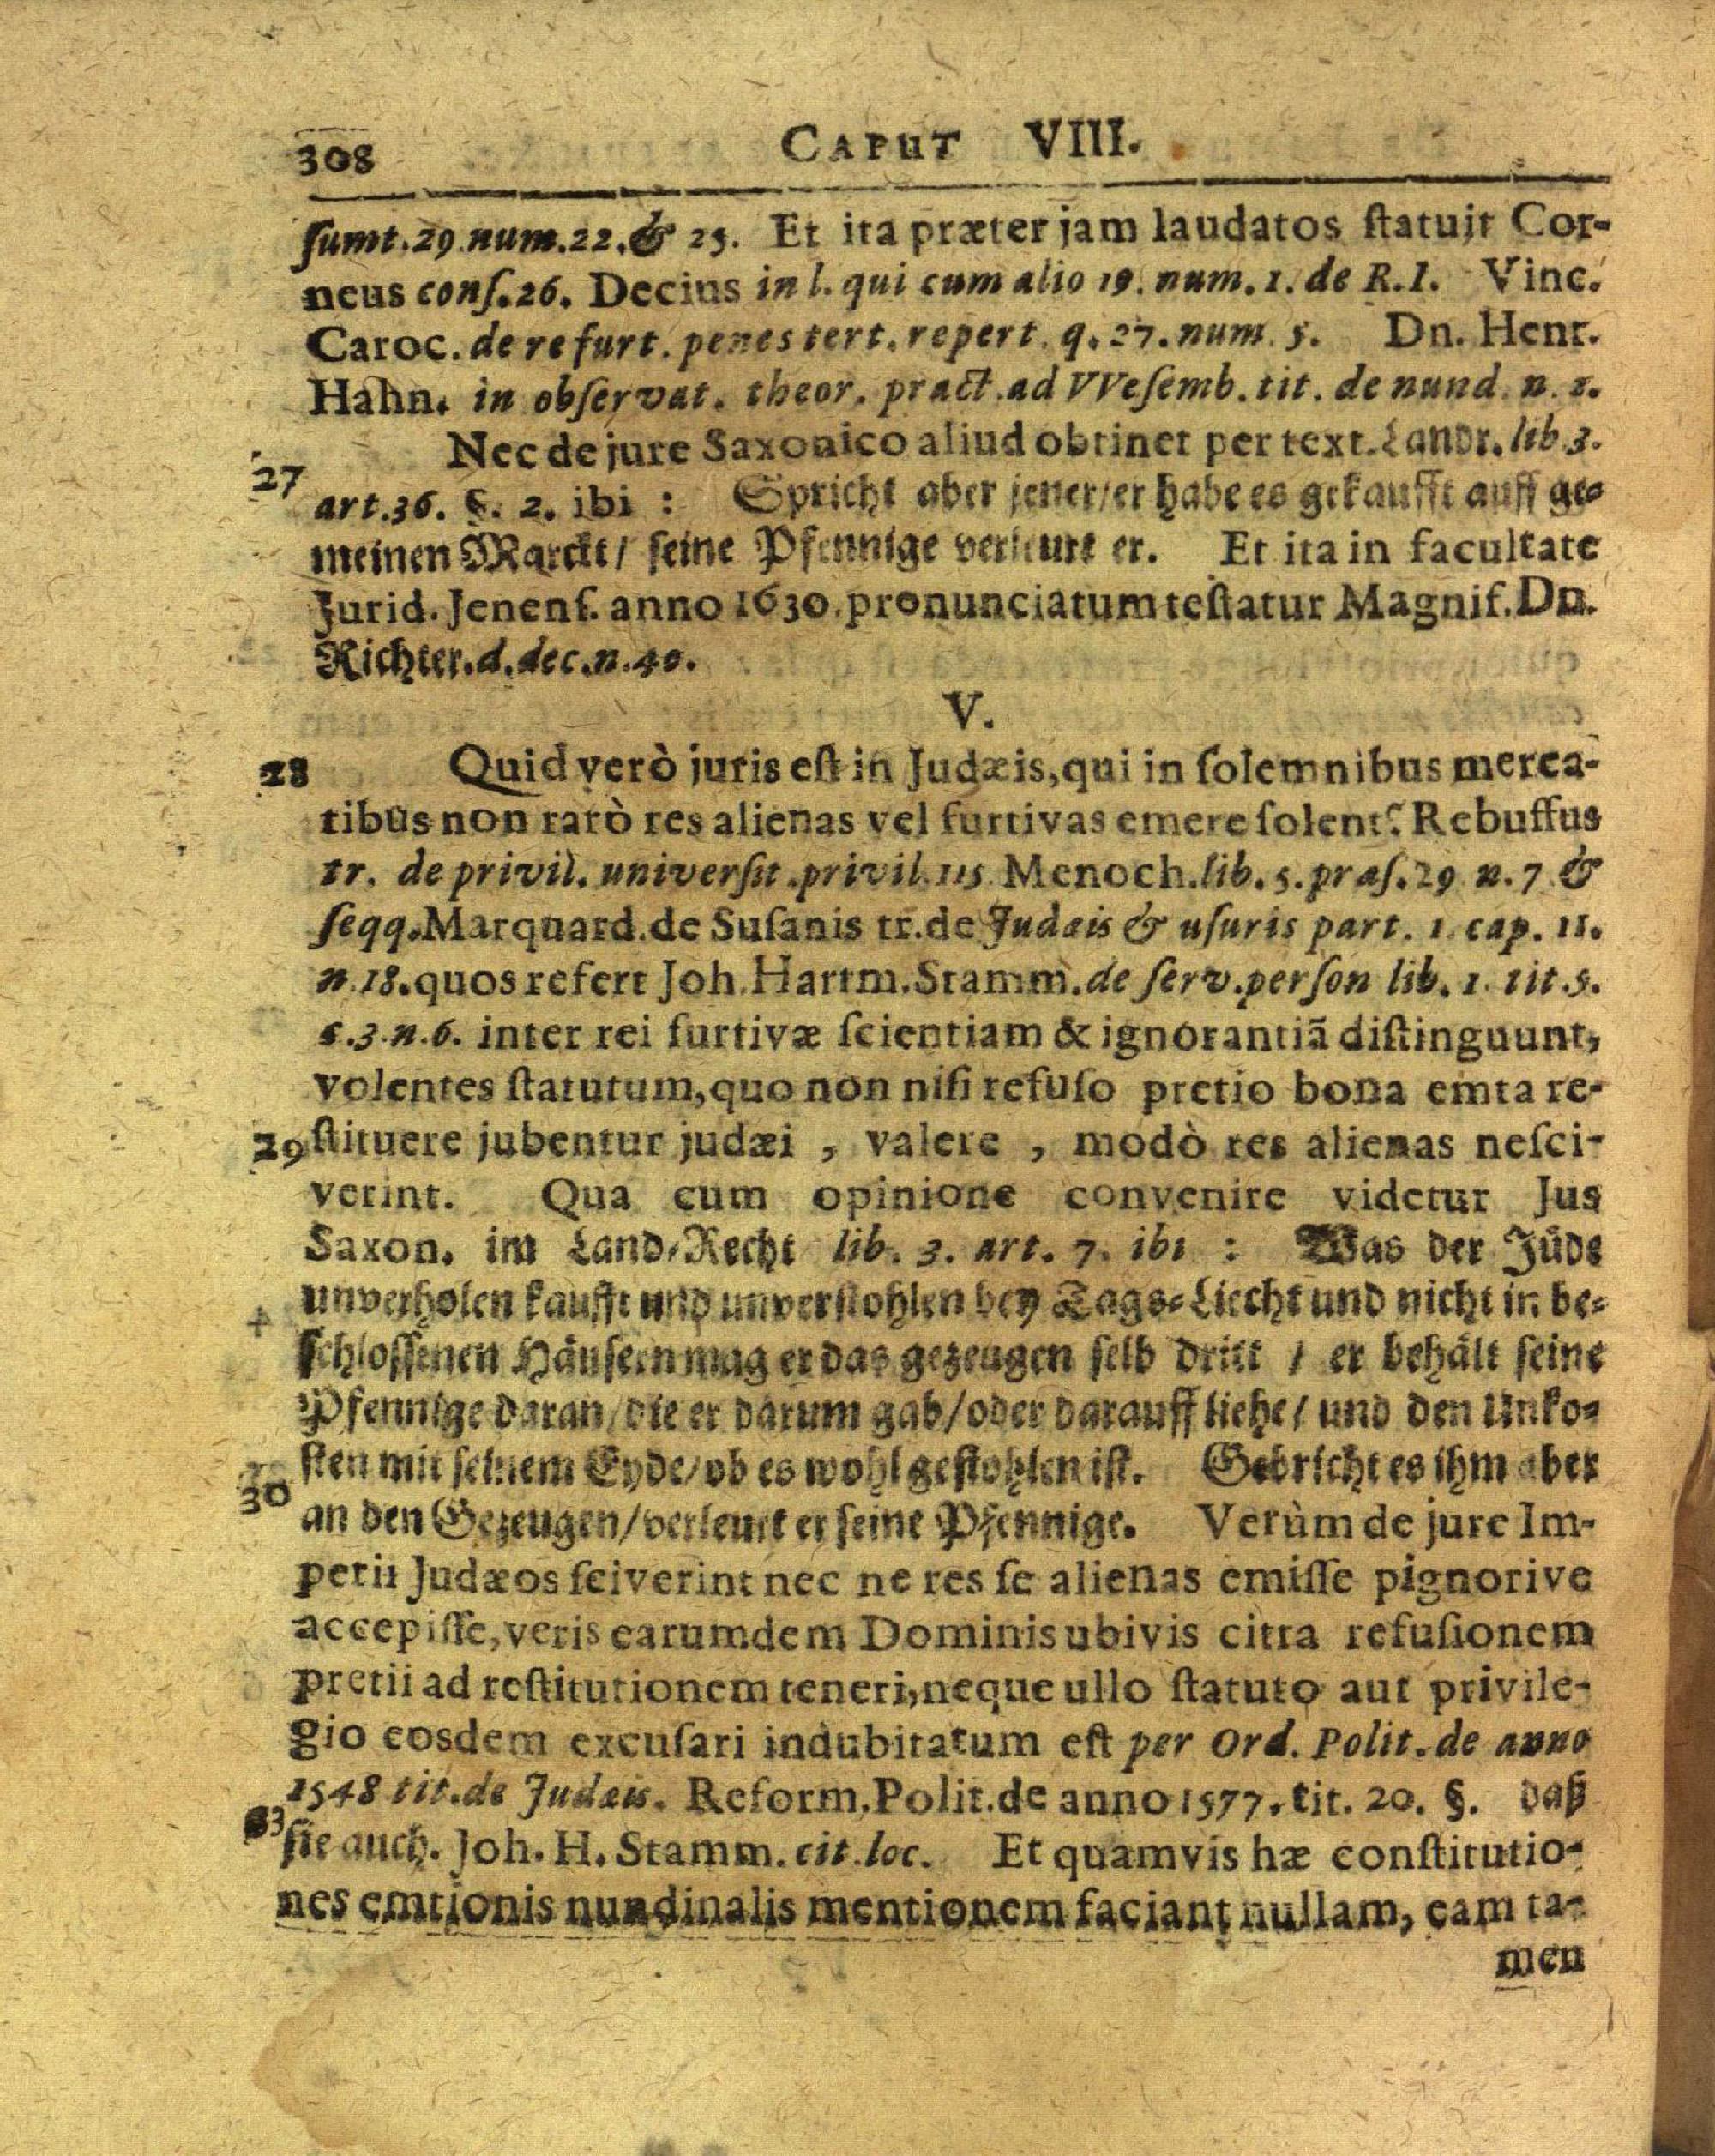 308 CAPUT VIII.
ſumt.29.num.22.& 25. Et ita præter jam laudatos ſtatuit Cor-
neus conſ.26. Decius in l. qui cum alio 19. num. 1. de R.I. Vinc.
Caroc. de re furt. penes tert. repert. q. 27. num. 5. Dn. Henr.
Hahn. in obſervat. theor. pract. ad VVeſemb. tit. de nund. n. 2.
27 Nec de jure Saxonico aliud obtinet per text. Landr. lib. 3.
art. 36. §. 2. ibi : Spricht aber jener/er habe es gekaufft auff ge-
meinen Marckt/ ſeine Pfennige verleurt er. Et ita in facultate
Jurid. Jenenſ. anno 1630. pronunciatum teſtatur Magnif. Dn.
Richter. d. dec. n. 40.
V.
28 Quid verò juris eſt in Judæis, qui in ſolemnibus merca-
tibus non rarò res alienas vel furtivas emere ſolent? Rebuffus
tr. de privil. univerſit. privil. 115. Menoch. lib. 5. præſ. 29 n. 7 &
ſeqq. Marquard. de Suſanis tr. de Judæis & uſuris part. 1. cap. 11.
n. 18. quos refert Joh. Hartm. Stamm. de ſerv. perſon lib. 1. tit. 5.
c. 3. n. 6. inter rei furtivæ ſcientiam & ignorantiã diſtinguunt,
volentes ſtatutum, quo non niſi refuſo pretio bona emta re-
29 ſtituere jubentur judæi , valere , modò res alienas neſci-
verint. Qua cum opinione convenire videtur Jus
Saxon. im Land-Recht lib. 3. art. 7. ibi : Was der Jüde
unverholen kaufft und unverſtohlen bey Tags-Liecht und nicht in be-
ſchloſſenen Häuſern mag er das gezeugen ſelb dritt / er behält ſeine
Pfennige daran/die er darum gab/oder darauff liehe/ und den Unko-
ſten mit ſeinem Eyde/ob es wohl geſtohlen iſt. Gebricht es ihm aber
30 an den Gezeugen/verleurt er ſeine Pfennige. Verùm de jure Im-
perii Judæos ſciverint nec ne res ſe alienas emiſſe pignorive
accepiſſe, veris earumdem Dominis ubivis citra refuſionem
pretii ad reſtitutionem teneri, neque ullo ſtatuto aut privile-
gio eosdem excuſari indubitatum eſt per Ord. Polit. de anno
1548 tit. de Judæis. Reform. Polit. de anno 1577. tit. 20. §. daß
ſie auch. Joh. H. Stamm. cit. loc. Et quamvis hæ conſtitutio-
nes emtionis nundinalis mentionem faciant nullam, eam ta-
men